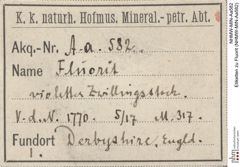 K. k. naturh. Hofmus. Mineral.-petr. Abt.
Akq.-Nr. A.a. 582.
Name Fluorit
violetter Zwillingsstock.
V.d.N. 1770. 5/17 M. 317.
Fundort Derbyshire, Engld.
NHMW-MIN-Aa582
Etiketten zu Fluorit (NHMW-MIN-Aa582)